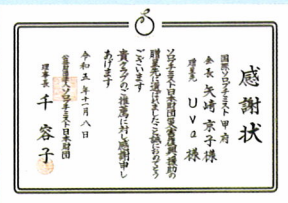 感謝状
国際ソロプチミスト甲府
会長 矢崎京子様
贈呈先 Uva様
ソロプチミスト日本財団災害復興援助の
贈呈先に選ばれましたこと誠におめでとう
ございます
貴クラブのご推薦に対し感謝申し
あげます
令和五年十一月八日
公益財団法人ソロプチミスト日本財団
理事長 千容子